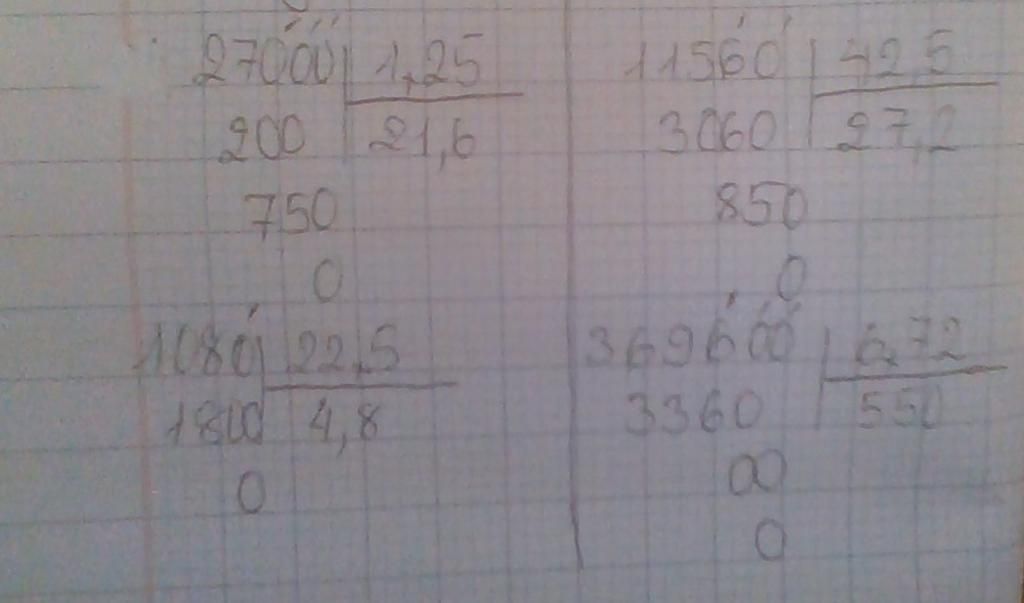 27000 1,25
200 21,6
750
0
11560 42,5
3060 27,2
850
0
1080 22,5
1800 4,8
0
369600 6,72
3360 550
00
0